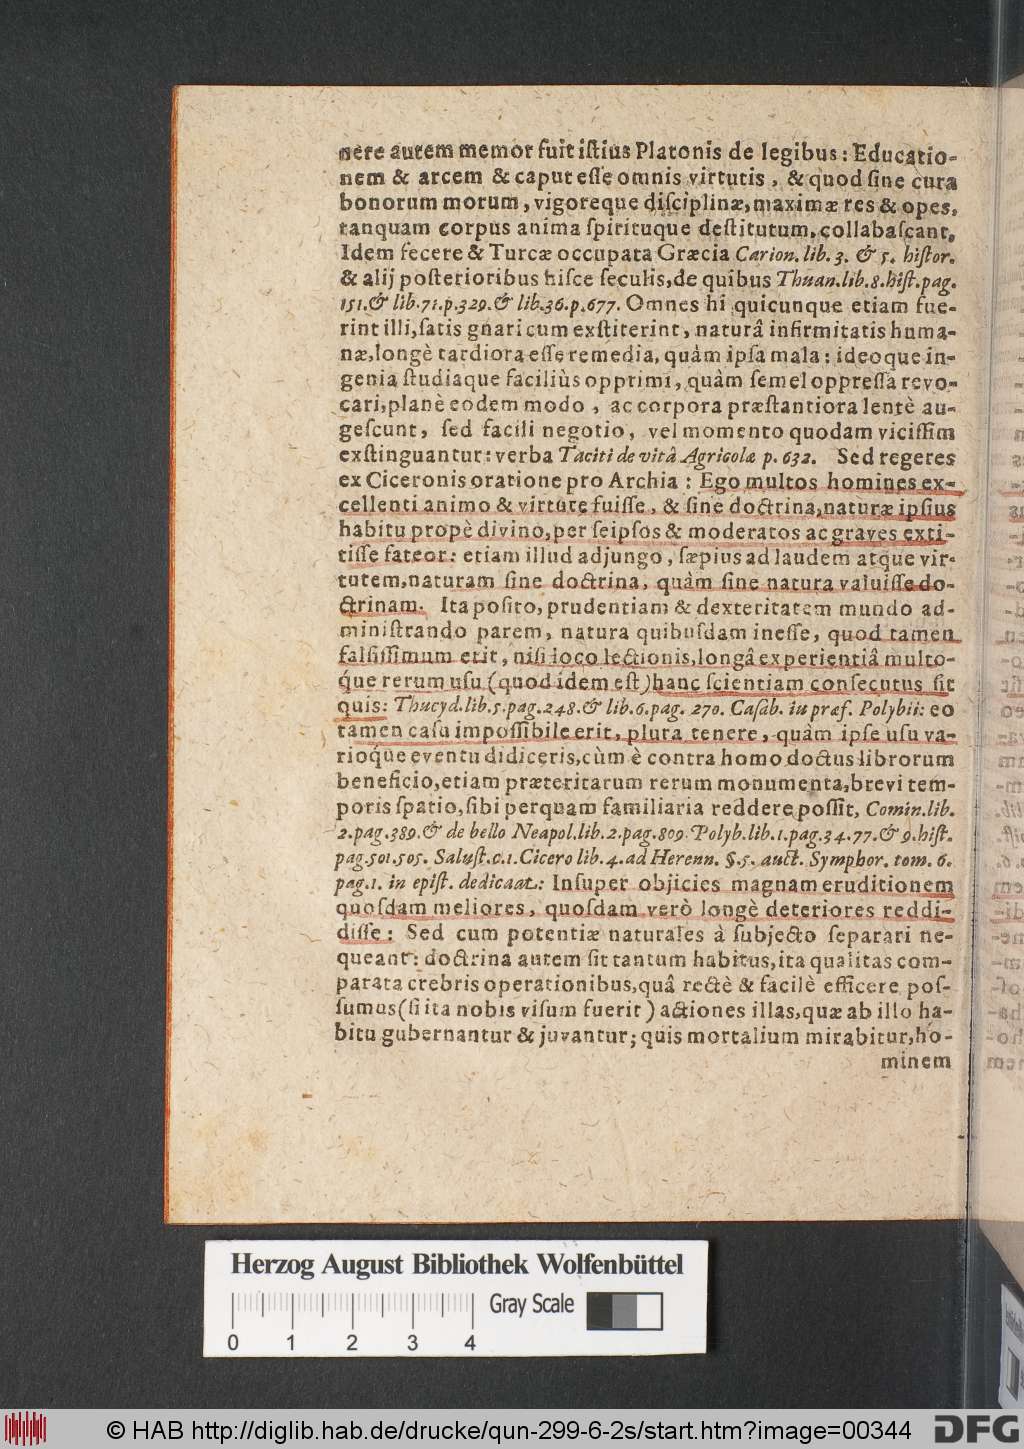 nere autem memor fuit iſtius Platonis de legibus: Educatio-
nem & arcem & caput eſſe omnis virtutis, & quod ſine cura
bonorum morum, vigoreque diſciplinæ, maximæ res & opes,
tanquam corpus anima ſpirituque deſtitutum, collabaſcant.
Idem fecere & Turcæ occupata Græcia Carion. lib. 3. & 5. hiſtor.
& alij poſterioribus hiſce ſeculis, de quibus Thuan. lib. 8. hiſt. pag.
151. & lib. 71. p. 329. & lib. 36. p. 677. Omnes hi quicunque etiam fue-
rint illi, ſatis gnari cum exſtiterint, naturâ infirmitatis huma-
næ, longè tardiora eſſe remedia, quàm ipſa mala: ideoque in-
genia ſtudiaque faciliùs opprimi, quàm ſemel oppreſſa revo-
cari, planè eodem modo, ac corpora præſtantiora lentè au-
geſcunt, ſed facili negotio, vel momento quodam viciſſim
exſtinguantur: verba Taciti de vitâ Agricolæ p. 632. Sed regeres
ex Ciceronis oratione pro Archia: Ego multos homines ex-
cellenti animo & virtute fuiſſe, & ſine doctrina, naturæ ipſius
habitu propè divino, per ſeipſos & moderatos ac graves exti-
tiſſe fateor: etiam illud adjungo, ſæpius ad laudem atque vir-
tutem, naturam ſine doctrina, quàm ſine natura valuiſſe do-
ctrinam. Ita poſito, prudentiam & dexteritatem mundo ad-
miniſtrando parem, natura quibuſdam ineſſe, quod tamen
falſiſſimum erit, niſi loco lectionis, longâ experientiâ multo-
q́ue rerum uſu (quod idem eſt) hanc ſcientiam conſecutus ſit
quis: Thucyd. lib. 5. pag. 248. & lib. 6. pag. 270. Caſab. in præf. Polybii: eo
tamen caſu impoſſibile erit, plura tenere, quàm ipſe uſu va-
rioq́ue eventu didiceris, cùm è contra homo doctus librorum
beneficio, etiam præteritarum rerum monumenta, brevi tem-
poris ſpatio, ſibi perquam familiaria reddere poſſit, Comin. lib.
2. pag. 389. & de bello Neapol. lib. 2. pag. 809. Polyb. lib. 1. pag. 34. 77. & 9. hiſt.
pag. 501. 505. Saluſt. c. 1. Cicero lib. 4. ad Herenn. §. 5. auct. Symphor. tom. 6.
pag. 1. in epiſt. dedicaat.: Inſuper objicies magnam eruditionem
quoſdam meliores, quoſdam verò longè deteriores reddi-
diſſe: Sed cum potentiæ naturales à ſubjecto ſeparari ne-
queant: doctrina autem ſit tantum habitus, ita qualitas com-
parata crebris operationibus, quâ rectè & facilè efficere poſ-
ſumus (ſi ita nobis viſum fuerit) actiones illas, quæ ab illo ha-
bitu gubernantur & juvantur; quis mortalium mirabitur, ho-
minem
Herzog August Bibliothek Wolfenbüttel
Gray Scale
0 1 2 3 4
© HAB http://diglib.hab.de/drucke/qun-299-6-2s/start.htm?image=00344
DFG